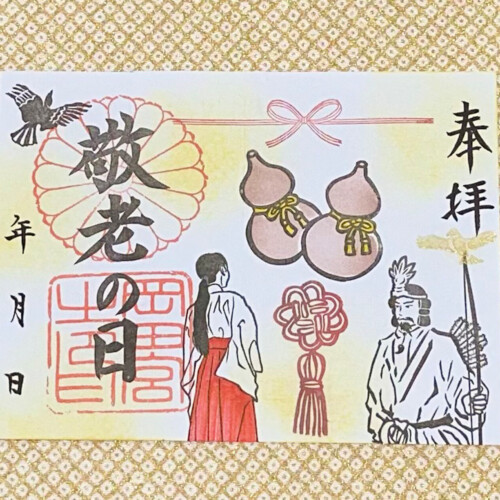 奉拝
敬老の日
年月日